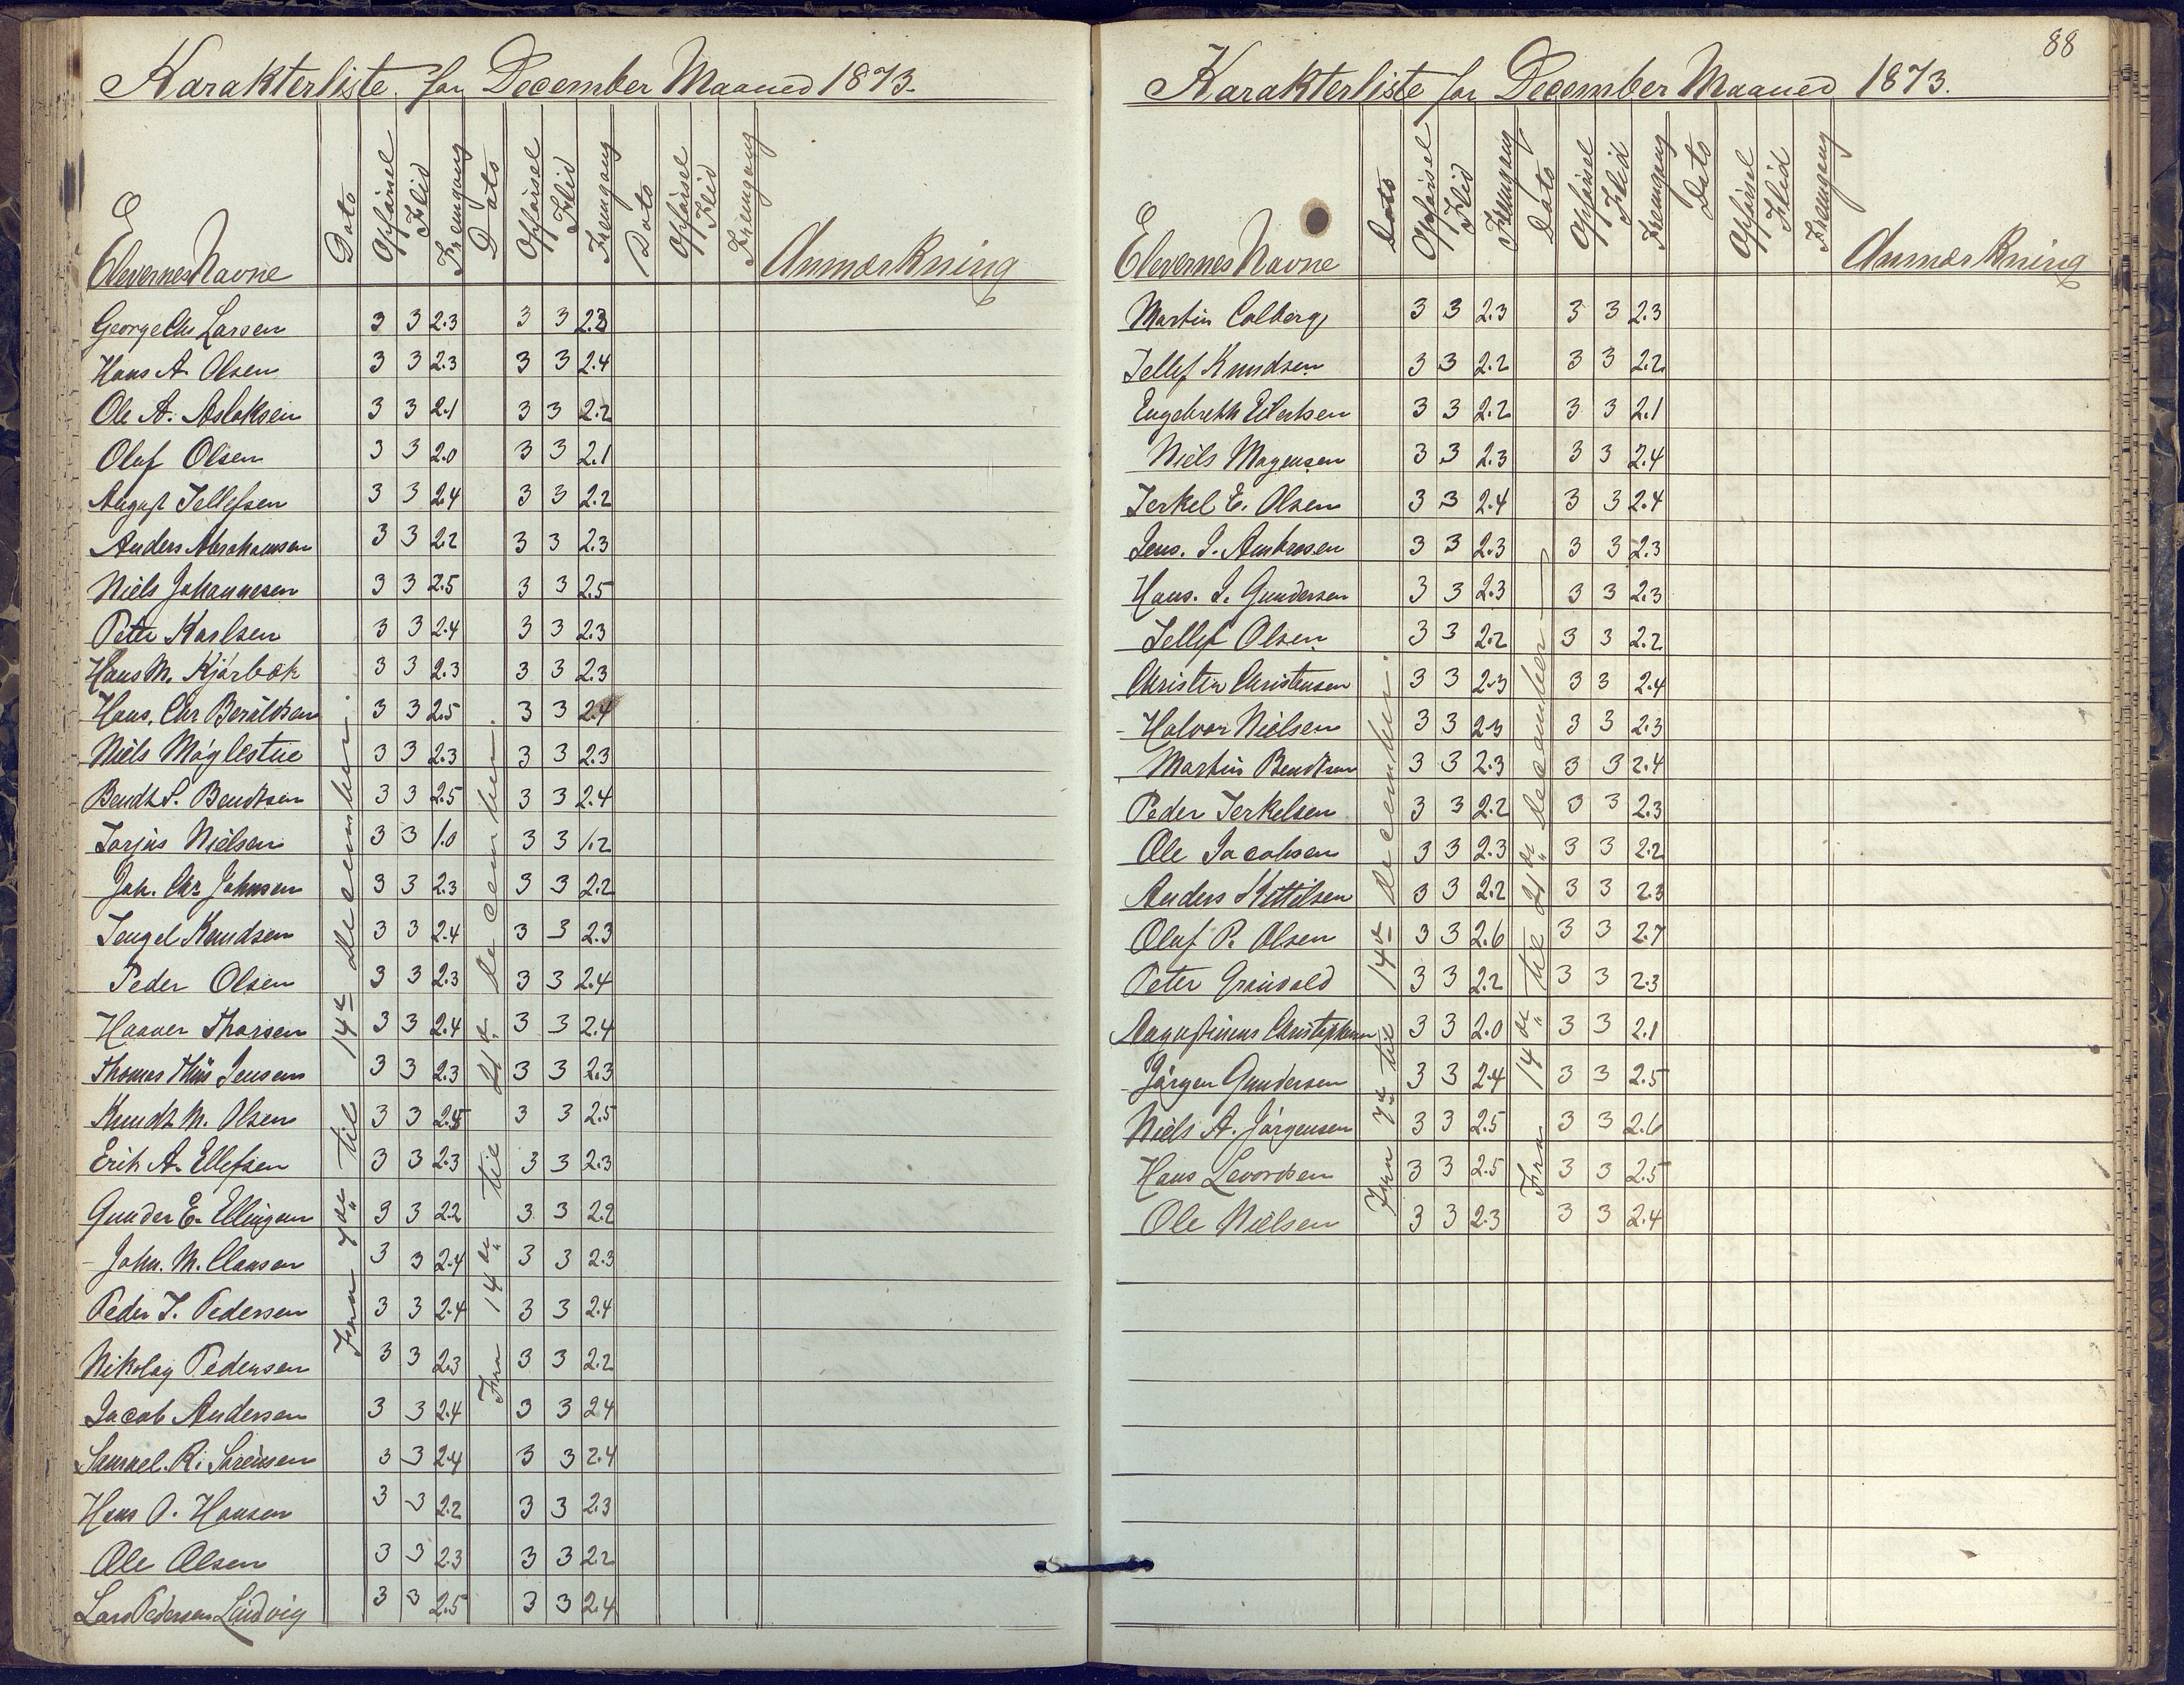 Karakterliste for December Maaned 1873.
Elevernes Navne Dato Opførsel Flid Fremgang Dato Opførsel Flid Fremgang Dato Opførsel Flid Fremgang Anmærkning
Fra 7de til 14de december.
Fra 14de til 21de december.
George Chr Larsen 3 3 2.3 3 3 2.3
Hans A. Olsen 3 3 2.3 3 3 2.4
Ole A. Aslaksen 3 3 2.1 3 3 2.2
Oluf Olsen 3 3 2.0 3 3 2.1
August Tellefsen 3 3 2.4 3 3 2.2
Anders Abrahamsen 3 3 2.2 3 3 2.3
Niels Johannesen 3 3 2.5 3 3 2.5
Peter Karlsen 3 3 2.4 3 3 2.3
Hans M. Kjørbek 3 3 2.3 3 3 2.3
Hans. Chr 3 3 2.5 3 3 2.4
Niels Møglestue 3 3 2.3 3 3 2.3
Bendt S. Bendtsen 3 3 2.5 3 3 2.4
Torjus Nielsen 3 3 1.0 3 3 1.2
Joh. Chr Johnsen 3 3 2.3 3 3 2.2
Tengel Knudsen 3 3 2.4 3 3 2.3
Peder Olsen 3 3 2.3 3 3 2.4
Haaver Thorsen 3 3 2.4 3 3 2.4
Thomas Thiis Jensen 3 3 2.3 3 3 2.3
Knudt M. Olsen 3 3 2.5 3 3 2.5
Erik A. Ellefsen 3 3 2.3 3 3 2.3
Gunder E. Ellingsen 3 3 2.2 3 3 2.2
John. M. Clausen 3 3 2.4 3 3 2.3
Peder T. Pedersen 3 3 2.4 3 3 2.4
Nikolay Pedersen 3 3 2.3 3 3 2.2
Jacob Andersen 3 3 2.4 3 3 2.4
Samuel. R. Sørensen 3 3 2.4 3 3 2.4
Hans O. Hansen 3 3 2.2 3 3 2.3
Ole Olsen 3 3 2.3 3 3 2.2
Lars Pedersen Lindvig 3 3 2.5 3 3 2.4
88
Karakterliste for December Maaned 1873.
Elevernes Navne Dato Opførsel Flid Fremgang Dato Opførsel Flid Fremgang Dato Opførsel Flid Fremgang Anmærkning
Fra 7de til 14de december.
Fra 14de til 21de december
Martin Colberg 3 3 2.3 3 3 2.3
Tellef Knudsen 3 3 2.2 3 3 2.2
Engebreth Eilertsen 3 3 2.2 3 3 2.1
Niels Mogensen 3 3 2.3 3 3 2.4
Terkel E. Olsen 3 3 2.4 3 3 2.4
Jens. J. Ambrosen 3 3 2.3 3 3 2.3
Hans. J. Gundersen 3 3 2.3 3 3 2.3
Tellef Olsen 3 3 2.2 3 3 2.2
Christen Christensen 3 3 2.3 3 3 2.4
Halvor Nielsen 3 3 2.3 3 3 2.3
Martin Bendtsen 3 3 2.3 3 3 2.4
Peder Terkelsen 3 3 2.2 3 3 2.3
Ole Jacobsen 3 3 2.3 3 3 2.2
Anders Kittelsen 3 3 2.2 3 3 2.3
Oluf P. Olsen 3 3 2.6 3 3 2.7
Peter Grønvold 3 3 2.2 3 3 2.3
Augustinius Christophersen 3 3 2.0 3 3 2.1
Jørgen Gundersen 3 3 2.4 3 3 2.5
Niels A. Jørgensen 3 3 2.5 3 3 2.6
Hans Levordsen 3 3 2.5 3 3 2.5
Ole Nielsen 3 3 2.3 3 3 2.4